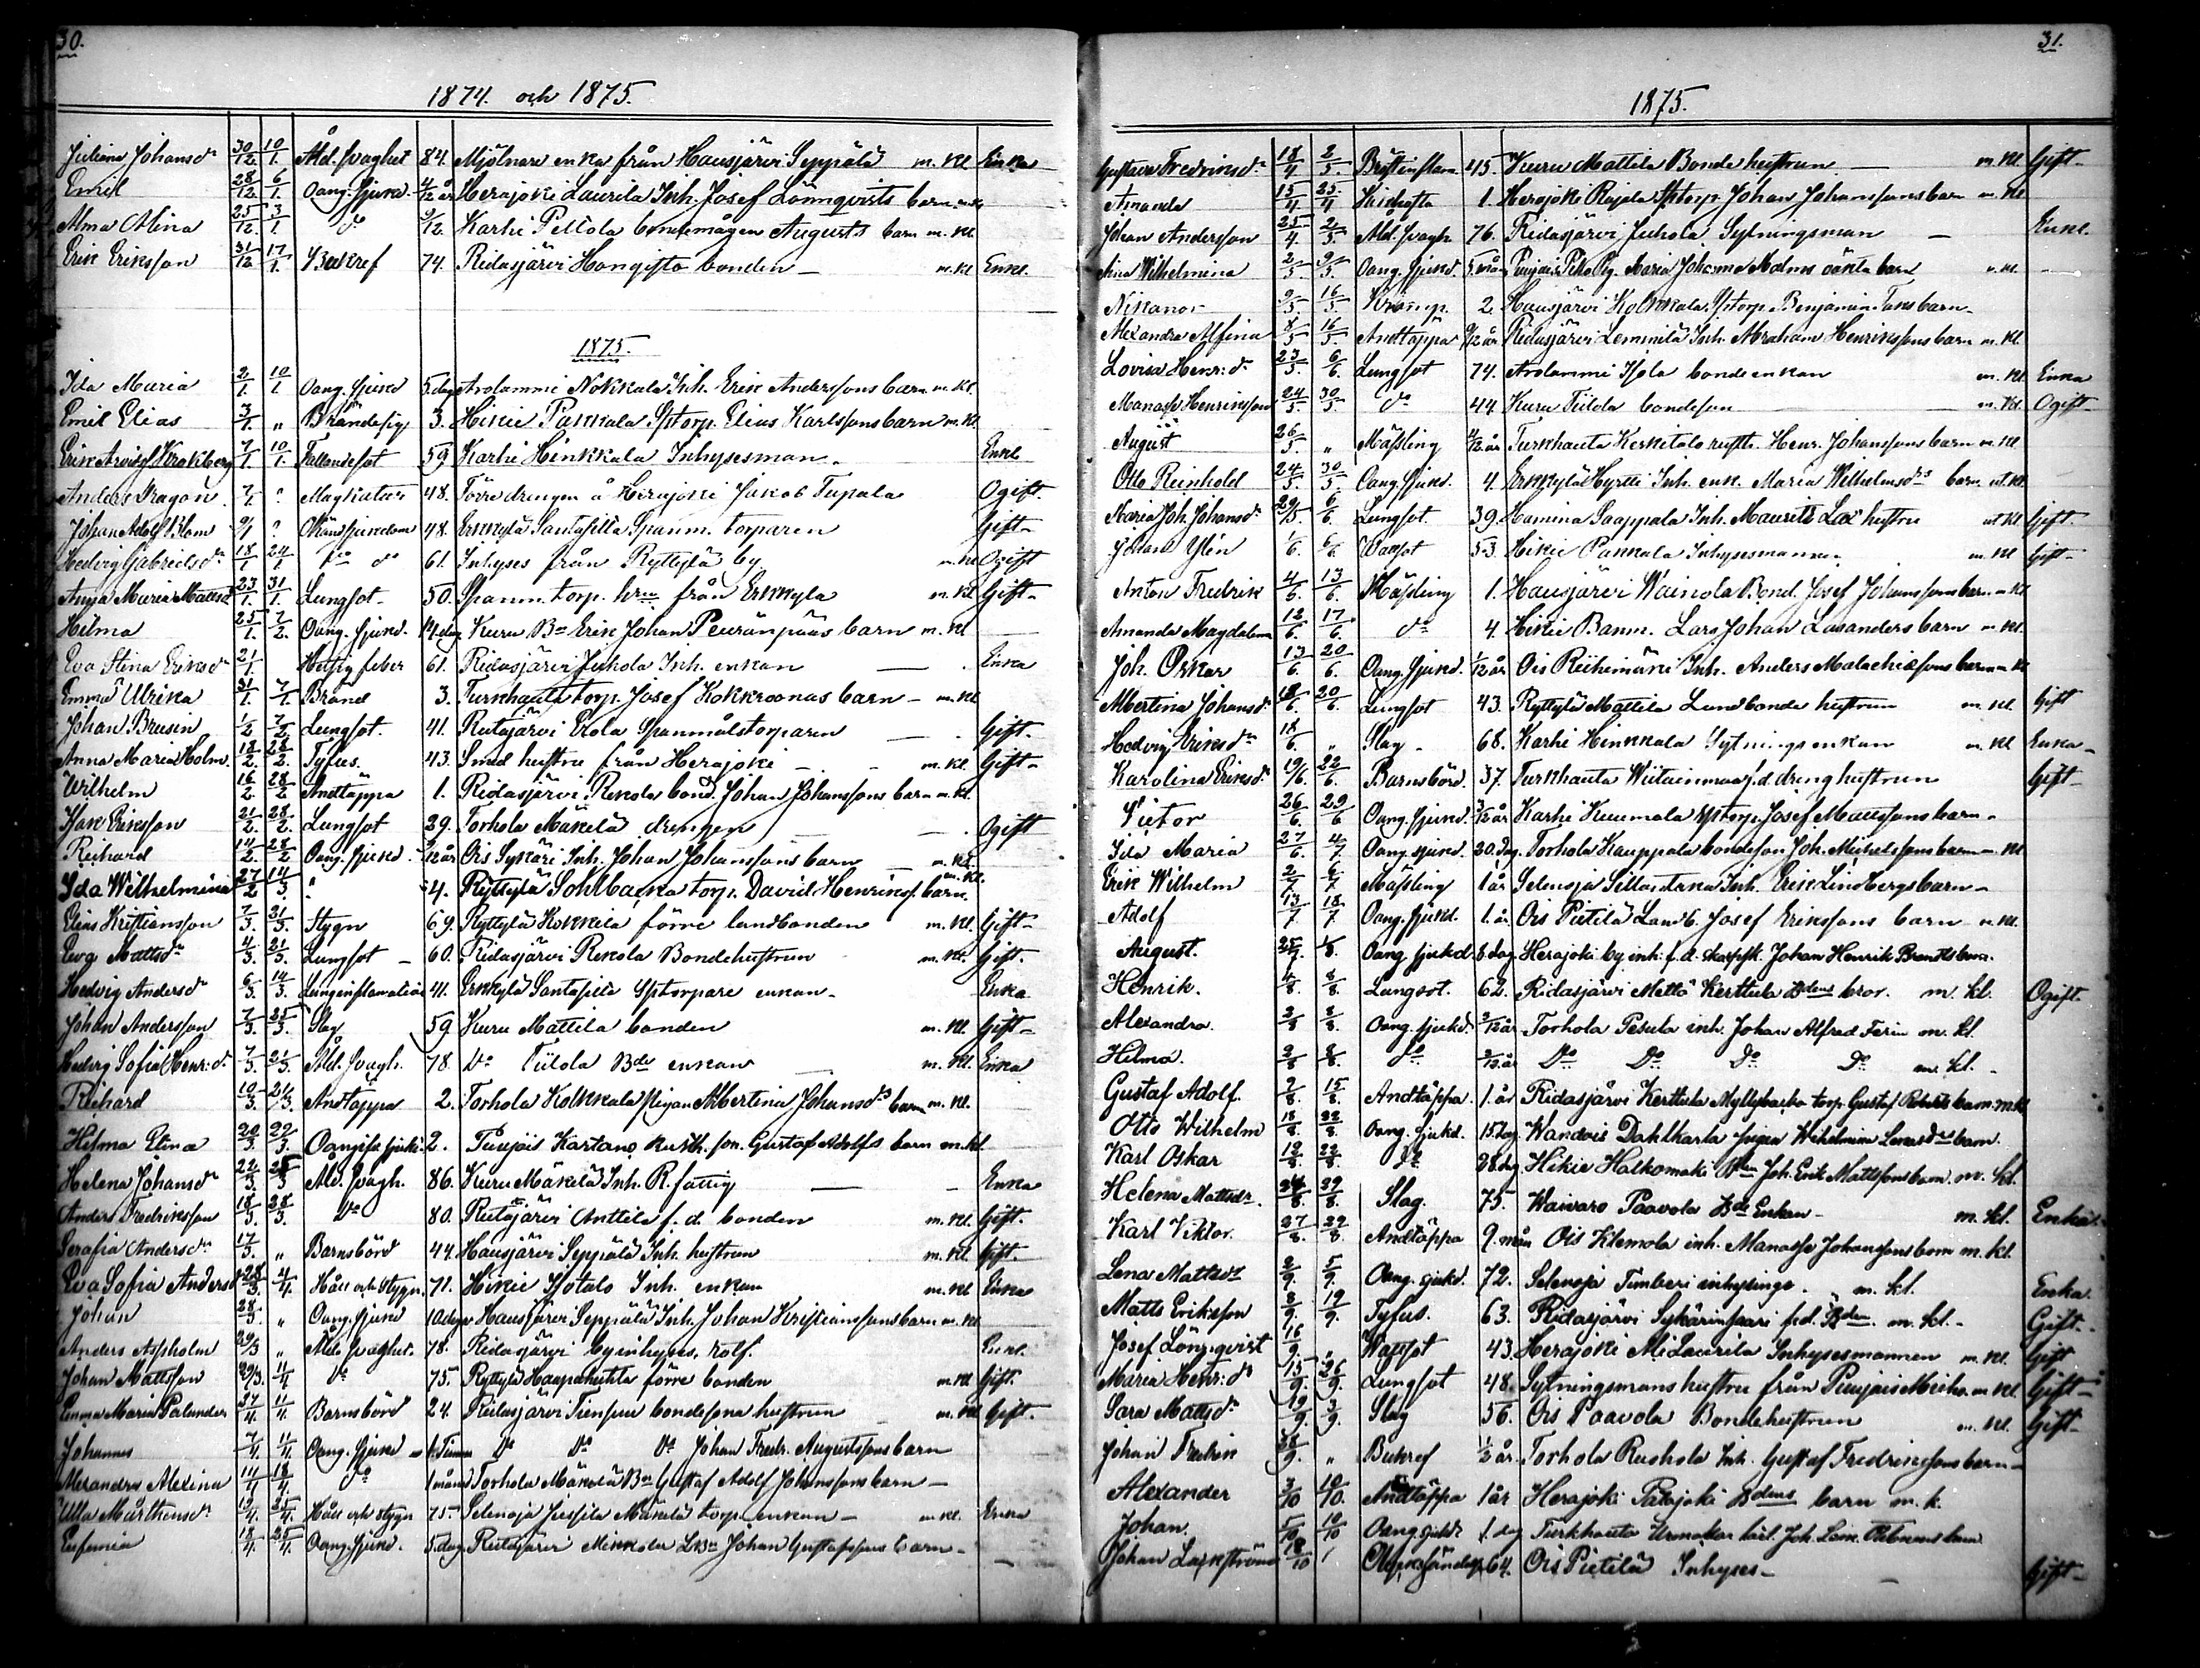 30.
1874. och 1875.
Juliana Johansdr 30/12. 10/1. Åld. svaghet 84. Mjölnare enka från Hausjärvi Seppälä m. kl. Enka
Emil 28/12. 6/1. Oang. sjukd. 4/12 år Herajoki Laurila Inh. Josef Lönnqvists barn m. kl
Alma Alina 25/12. 3/1. do 9/12 Karhi Peltola bondemågen Augusts barn m. kl.
Erik Eriksson 31/12 17/1. 74. Ridasjärvi Hongisto bonden – m. kl Enkl.
1875.
Ida Maria 2/1. 10/1 Oang. sjukd 5. dag Arolammi Nokkala Inh. Erik Anderssons barn m. kl.
Emil Elias 3/1. „ 3. Hikie Pakkala Sptorp. Elias Karlssons barn m. kl.
Erik Arvid Krakberg 7/1 10/1. Fallandesot 59 Karhi Hinkkala Inhysesman. Enkl
Anders 7/1. ? Magkatarr 48. Förre drengen å Herajoki Jakob Tupala Ogift.
Johan Adolf Blom 9/1 ? Okänd sjukdom 48. Erkkylä Santasilta Spanm. torparen Gift –
Hedvig Gabrielsdr 18/1 24/1 do do 61. Inhyses från Ryttylä by m. kl Ogift
Anna Maria Mattsd 23/1. 31/1. Lungsot – 50. Spanm. torp. hru från Erkkylä m. kl Gift –
Helma 25/1. 7/2. Oang. sjukd. 14. dag Kuru Bn Erik Johan Peuränpääs barn m. kl
Eva Stina Eriksdr 21/1. feber 61. Ridasjärvi Juhola Inh. enkan Enka
Emma Ulrika 31/1. 7/1. Bränd 3. Turkhauta torp. Josef Kokkroonas barn – m. kl
Johan Brusin 1/2 7/2 Lungsot. 41. Rutajärvi Erola Spanmålstorparen Gift.
Anna Maria Holm. 18/2. 28/2. Tyfus. 43. Smed hustru från Herajoki – m. kl. Gift –
Wilhelm 16/2. 28/2 Andtäppa 1. Ridasjärvi Rekola bond. Johan Johanssons barn m. kl.
Isak Eriksson 21/2. 28/2. Lungsot 29. Torhola Mäkelä drengen Ogift
Richard 14/2. 28/2 Oang. sjukd. /12 år Ois Sykäri Inh. Johan Johanssons barn m. kl.
Ida Wilhelmina 27/2 14/3. „ 4. Ryttylä Sohlbacka torp. David Henrikss. barn. m. kl.
Elias Kristiansson 7/3. 21/3. Stygn 69. Ryttylä Kokkila förre landbonden m. kl. Gift –
Eva Mattsdr 4/3. 21/3. Lungsot – 60. Ridasjärvi Rekola Bondehustrun m. kl. Gift.
Hedvig Andersdr 6/3. 14/3. Lunginflamation 41. Erkkylä Santasilta Sptorpare enkan – Enka
Johan Andersson 7/3. 25/3. Slag 59 Kuru Mattila bonden m. kl Gift –
Hedvig Sofia Henr:dr 7/3. 21/3. Åld. svagh. 78. Do Tiilola Bde enkan m. kl. Enka
Richard 10/3. 21/3. Andtäppa 2. Torhola Kolkkala pigan Albertina Johansdrs barn m. kl.
Helma Elina 20/3 29/3. Oangifn sjukd. 2. Puujois Kartano rusth. son. Gustaf Adolfs barn m. kl
Helena Johansdr 22/3 25/3 Åld. svagh. 86. Kuru Mäkelä Inh. R. fattig Enka
Anders Fredriksson 18/3. 28/3. Do 80. Rutajärvi Anttila f. d. bonden m. kl. Gift.
Serafia Andersdr 17/3. „ Barnsbörd 44. Hausjärvi Seppälä Inh. hustrun m. kl. Gift
Eva Sofia Andersd 28/3. 4/4. Håll och stygn 71. Hikie Isotalo Inh. enkan m. kl Enka
Johan 28/3. „ Oang. sjukd 10 dagar Hausjärvi Seppälä Inh. Johan Kristianssons barn m. kl
Anders Aspholm 29/3 „ Åld. svaghet. 78. Ridasjärvi byinhyses. rolf. Enkl.
Johan Mattsson 29/3. 11/4 Do 75. Ryttylä Haapahuhta förre bonden m. kl Gift.
Emma Maria Palander 11/4. Barnsbörd 24. Ridasjärvi Tienpuu bondesona hustrun m. kl Gift.
Johannes 7/4. 11/4. Oang. sjukd Do Do Do Johan Fredr. Augustssons barn
Alexandra Alexina 14/4 18/4. do 1 månad Torhola Mäkelä Bn Gustaf Adolf Johanssons barn –
Ulla Mårthensdr 19/4. 25/4. Håll och stygn 75. Selenoja Jussila Mäkelä torp. enkan – m. kl. Enka
Eufemia 18/4. 25/4. Oang. sjukd. 5. dag Rutajärvi Mikkola LBn Johan Gustafssons barn –
31.
1875.
Gustava Fredriksdr 18/4 2/5. Bröstinflam. 45. Kuru Mattila Bonde hustrun m. kl. Gift –
Amanda 15/4 25/4 Kikhosta 1. Herajoki Rajala Sptorp. Johan Johanssons barn m. kl
Johan Andersson 25/4. 2/5. Åld. svagh. 76. Ridasjärvi Juhola Sytningsman – Enkl.
Aina Wilhelmina 2/5 9/5. Oang. sjukd. 5 mån Puujois Peltola Pig. Maria Johanna Malms oäkta barn m. kl.
Nikanor 9/5. 16/5. Kramp. 2. Hausjärvi Kolkkala Sptorp. Benjamin Taks barn –
Alexandra Alfina 8/5 16/5. Andtäppa 9/12 år Ridasjärvi Lemmilä Inh. Abraham Henrikssons barn m. kl.
Lovisa Henr:dr 23/5. 6/6. Lungsot 74. Arolammi Isola bondeenkan m. kl. Enka
Manasse Henriksson 24/5. 30/5. do 44. Kuru Tiilola bondeson m. kl Ogift –
August 26/5. „ Mässling 4/12 år Turkhauta Kerkitalo rusth. Henr. Johanssons barn m. kl
Otto Reinhold 24/5. 30/5. Oang. sjukd. 4. Erkkylä Hyrtti Inh. enk. Maria Wilhelmsdrs barn. ut. kl.
Maria Joh. Johansdr 29/5. 6/6. Lungsot. 39. Hamina Saappala Inh. Maurits Lax hustru ut kl Gift.
Johan Ylén 1/6. 6/6 Vatsot 53. Hikie Pakkala Inhysesmannen. m. kl Gift –
Anton Fredrik 4/6. 13/6. Mässling 1. Hausjärvi Wainola Bond. Josef Johanssons barn m. kl
Amanda Magdalena 12/6. 17/6. do 4. Hikie Banm. Lars Johan Lasanders barn m. kl.
Joh. Oskar 13/6. 20/6. Oang. sjukd. 1/12 år Ois Riihimäki Inh. Anders Malachiassons barn m. kl
Albertina Johansdr 18/6. 20/6. Lungsot 43. Ryttylä Mattila Landbonde hustrun m. kl. Gift
Hedvig Eriksdr 18/6. „ Slag – 68. Karhi Hinkkala Sytningsenkan m. kl Enka –
Karolina Eriksdr 19/6. 22/6. Barnsbörd. 37. Turkhauta Wiitainmaa f.d dreng hustrun Gift –
Victor 26/6. 29/6 Oang. sjukd. 3/12 år Karhi Kuumola Sptorp. Josef Mattssons barn –
Ida Maria 27/6. 4/7 Oang. sjukd. 20. dag. Torhola Kauppala bondeson Joh. Mickelssons barn – m. kl
Erik Wilhelm 2/7 6/7 Mässling 1 år Selenoja Inh. Erik Lindbergs barn –
Adolf 13/7 18/7. Oang. sjukd. 1. år. Ois Pietilä Landb. Josef Erikssons barn – m. kl.
August. 25/7. 1/8. Oang sjukd 8 dag Herajoki by inh. f. d. skarpsk. Johan Henrik Brandts barn.
Henrik. 4/8. 8/8. Lungsot. 62. Ridasjärvi Mettä Kerttula Bdens bror. m. kl. Ogift.
Alexandra. 2/8 8/8. Oang. sjukd. 2/12 år Torhola Pesula inh. Johan Alfred Ferin m. kl.
Helma. 2/8 8/8. do 2/12 år Do Do Do Do m. kl. –
Gustaf Adolf. 9/8. 15/8. Andtäppa. 1. år Ridasjärvi Kerttula Myllybacka torp. Gustaf Roberts barn. m. kl
Otto Wilhelm 18/8 22/8. Oang. sjukd. 15 dag. Wandois Dahlkarla pigan Wilhelmina barn.
Karl Oskar 19/8. 22/8. do 28. dag. Hikie Halkomäki Bden Joh. Erik Mattssons barn. m. kl.
Helena Mattsdr. 24/8 29/8. Slag. 75. Waivaro Paavola Bde Enkan – m. kl. Enka.
Karl Viktor. 27/8. 29/8. Andtäppa 9. mån Ois Klemola inh. Manasse Johanssons barn m. kl.
Lena Mattsdr 2/9. 5/9. Oang. sjukd. 72. Selenoja Timberi inhysinge. m. kl. Enka.
Matts Eriksson 8/9. 19/9. Tyfus. 63. Ridasjärvi f.d. Bden m. kl. – Gift.
Josef Lönnqvist 16/9. „ Vatsot 43. Herajoki AliLaurila Inhysesmannen m. kl. Gift
Maria Henr:dr 15/9. 26/9. Lungsot 48. Sytningsmans hustru från Puujois m. kl Gift –
Sara Mattsdr 19/9. 3/9. Slag 56. Ois Paavola Bondehustrun m. kl. Gift –
Johan Fredrik 28/9. „ Bukref 1/2 år. Torhola Ruohola Inh. Gustaf Fredrikssons barn –
Alexander 3/10 10/10. Andtäppa 1 år Herajoki Patajoki Bdens barn m. k.
Johan. 5/10 10/10 Oang sjukd. 1. dag Turkhauta Urmakar lärl. Joh. barn
Johan 18/10 64. Ois Pietilä Inhyses – Gift –